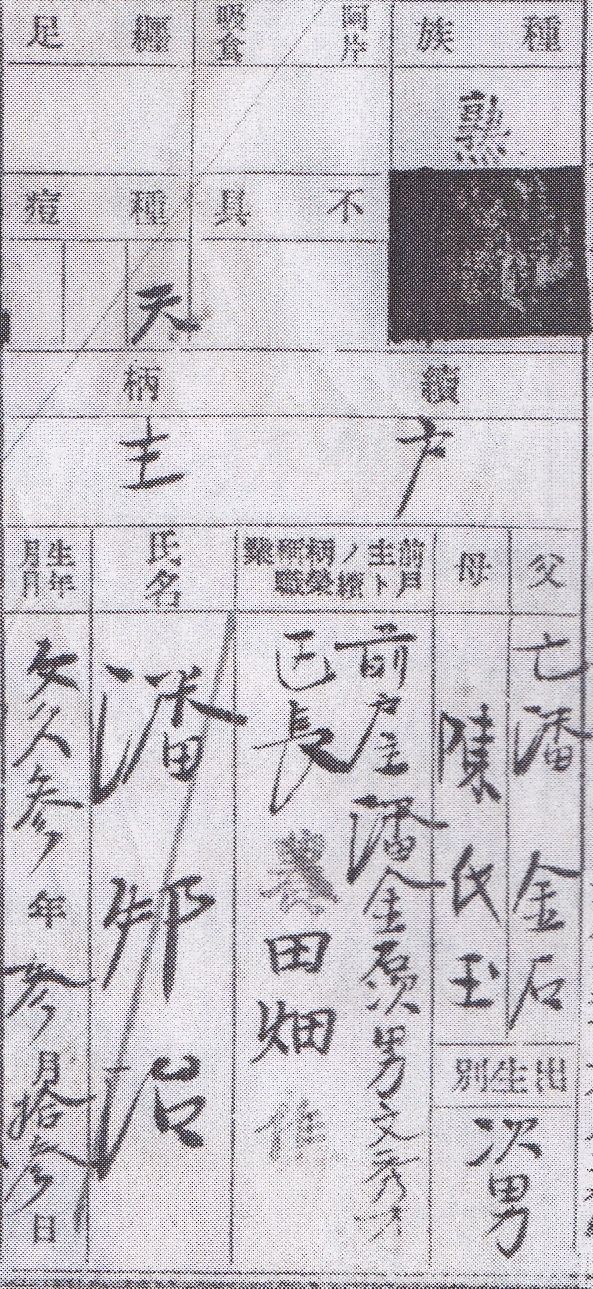 種族
熟
阿片吸食
纏足
不具
種痘
天
續柄
戶主
父
亡潘金石
母
陳氏玉
出生別
次男
前戶主トノ續柄榮稱職業
前戶主潘金石次男文秀才
區長 農田畑作
氏名
潘邦治
生年月日
文久參年參月拾參日